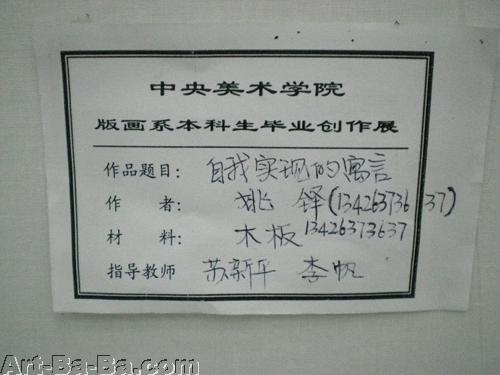 中央美术学院
版画系本科生毕业创作展
作品题目: 自我实现的寓言
作 者: 姚 铎(13426373637)
材 料: 木板 13426373637
指导教师 苏新平 李帆
Art-Ba-Ba.com